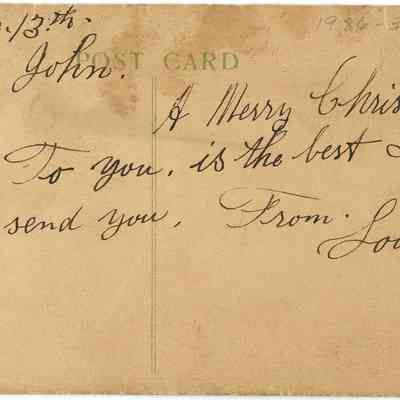 . 13th. 1986-
POST CARD
John.
A Merry Chris
To you. is the best
send you. From.
Lou